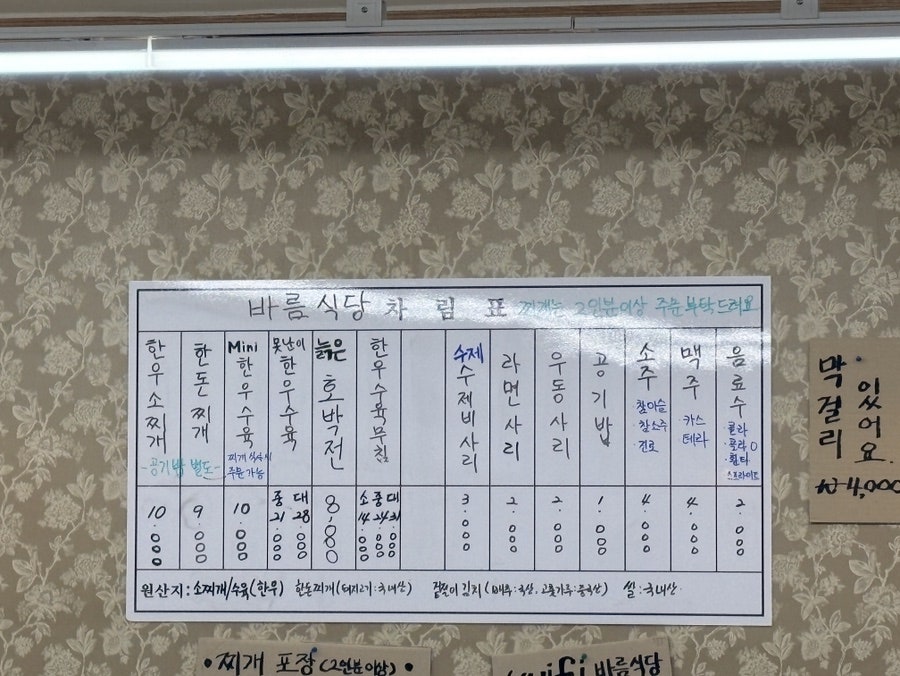 바름식당 차림표 찌개는 2인분이상 주문 부탁드려요
한우소찌개
한돈찌개
-공기밥 별도-
Mini 한우수육
찌개 식사시
주문가능
못난이 한우수육
늙은 호박전
한우수육무침
수제 수제비사리
라면사리
우동사리
공기밥
소주
참이슬
·참소주
·진로
맥주
카스
테라
음료수
·콜라
·콜라 0
·환타
·스프라이트
10.000
9.000
10.000
중 21.000
대 28.000
8,000
소 14.000
중 24.000
대 31.000
3.000
2.000
2.000
1.000
4.000
4.000
2.000
원산지: 소찌개/수육(한우) 한돈찌개(돼지고기:국내산) 김치(배추:국산, 고춧가루:중국산) 쌀:국내산
막걸리 있어요
₩4,000
•찌개 포장(2인분이상)•
wifi 바름식당